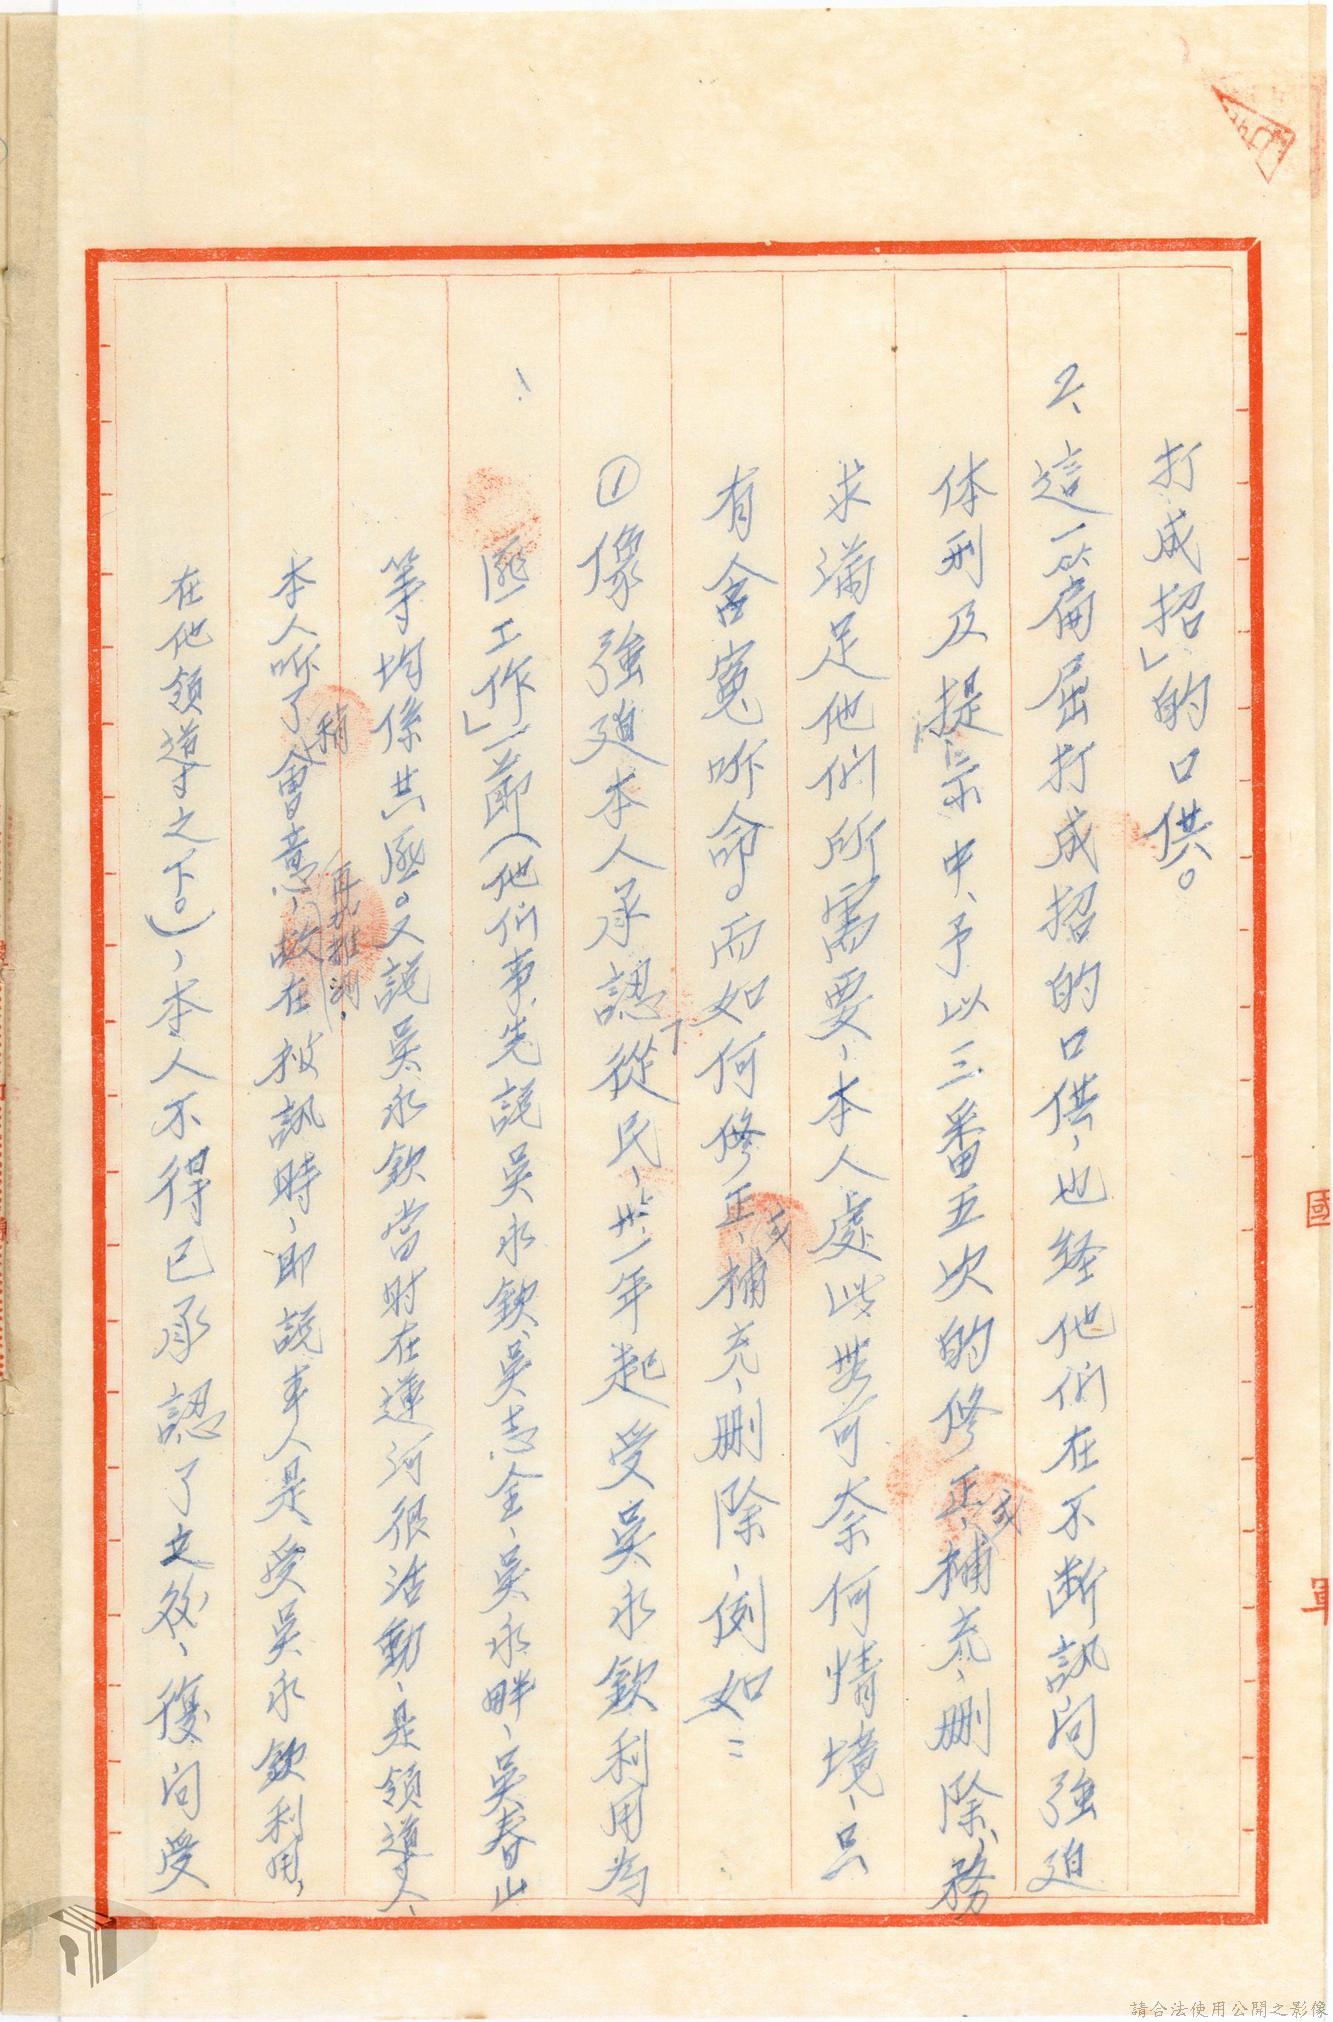 打成招」的口供。
2、這一篇屈打成招的口供,也経他們在不断訊问強廹
体刑及提示中、予以三番五次的修正、或補充、删除、務
求满足他們所需要,本人處此無可奈何情境,只
有含寃听命。而如何修正、或補充、删除,例如:
①像強廹本人承認「從民、卅一年起受吳永欽利用為
匪工作」一節(他们事先說吳永欽、吳志全、吳永畔、吳春山
等均係共匪。又說吳永欽當时在蓮河很活動,是領導人、
本人听了稍會意,再加推測,故在被訊時,即說本人是受吳永欽利用,
在他領導之下。),本人不得已承認了之後,復问受
國
軍
請合法使用公開之影像